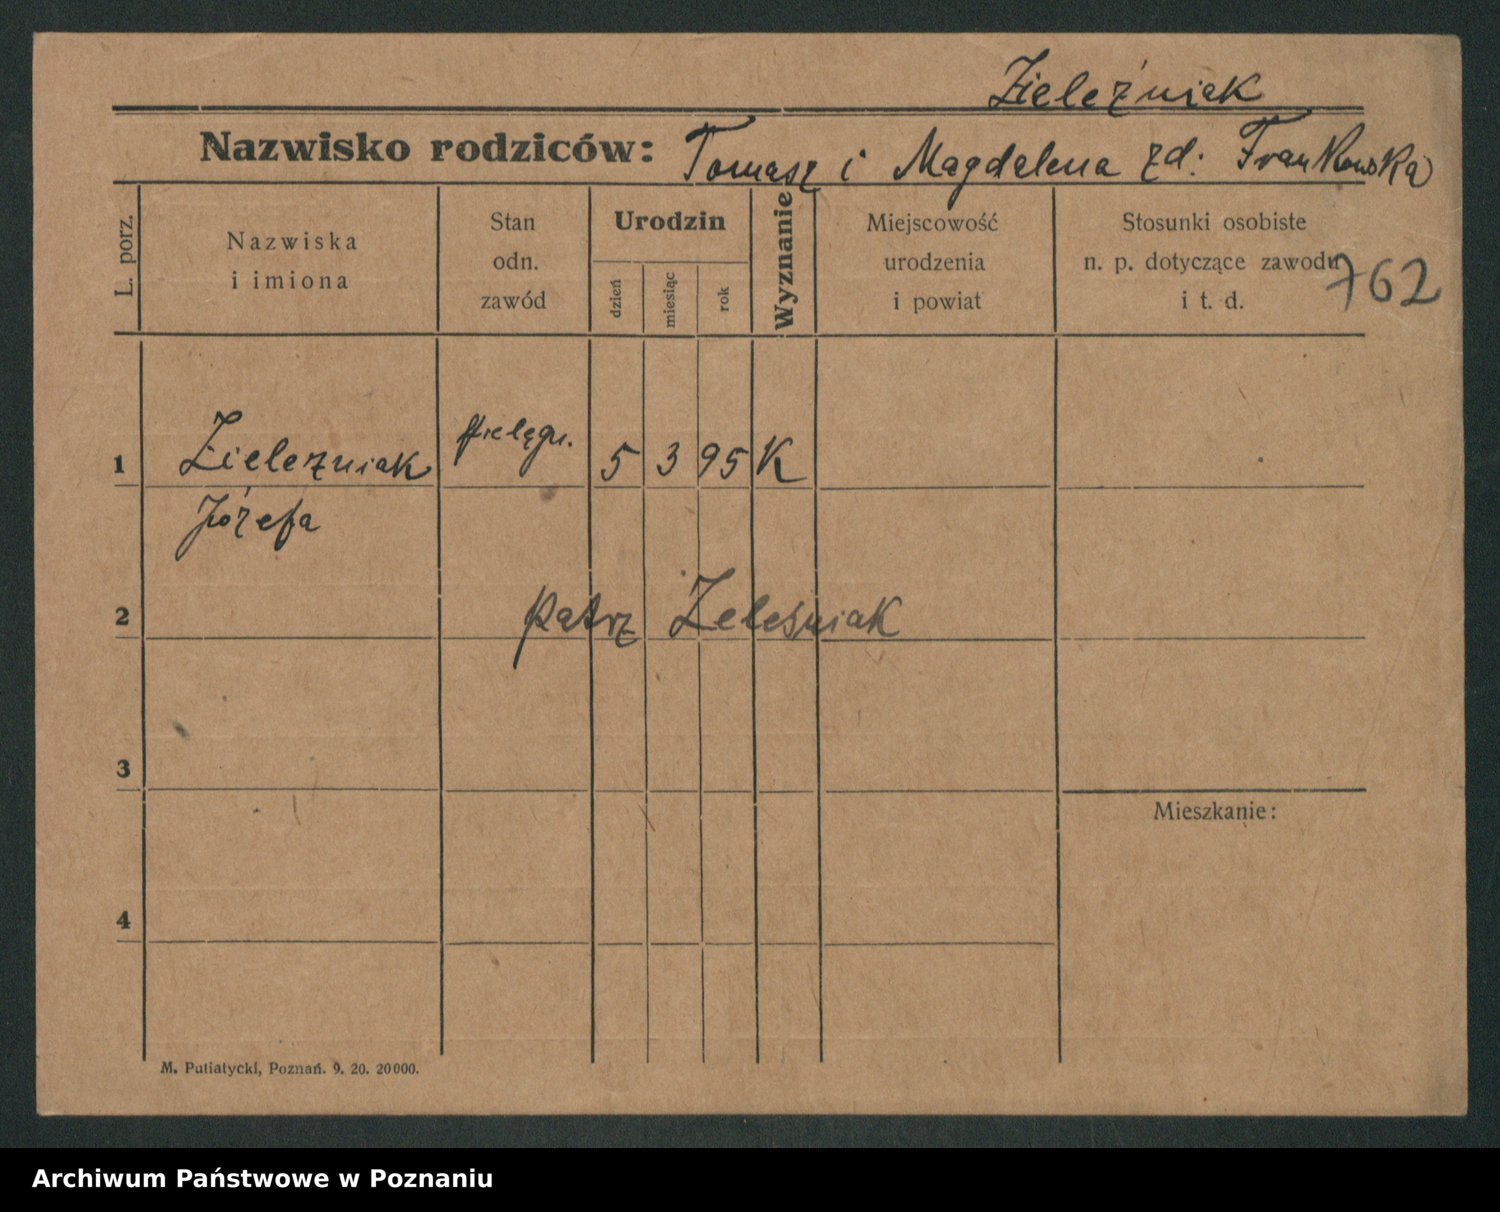 Zieleźniak
Nazwisko rodziców: Tomasz i Magdalena zd: Frankowska
L. porz.
Nazwiska
i imiona
Stan
odn.
zawód
Urodzin
dzień
miesiąc
rok
Wyznanie
Miejscowość
urodzenia
i powiat
Stosunki osobiste
n. p. dotyczące zawodu
i t. d.
762
1 Zielezniak pielęgn. 5 3 95 K
Józefa
2 patrz Zeleśniak
3
Mieszkanie:
4
M. Putiatycki, Poznań. 9. 20. 20000.
Archiwum Państwowe w Poznaniu